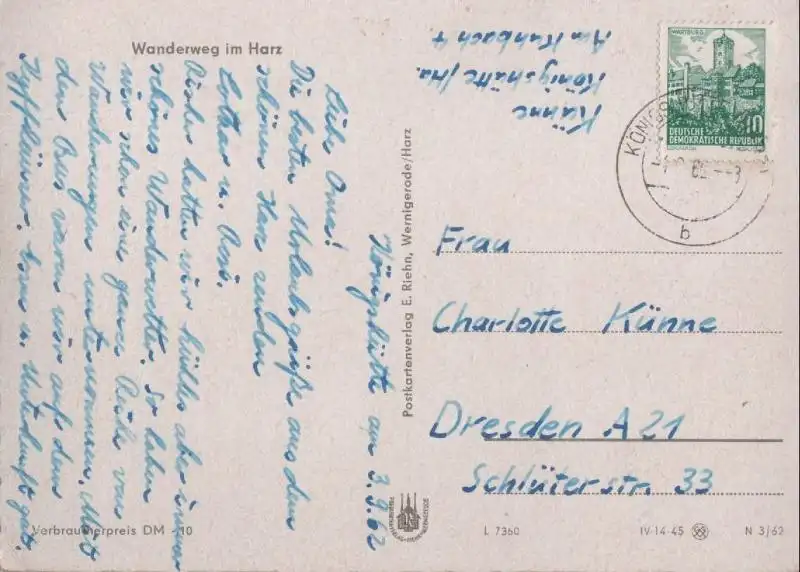 Wanderweg im Harz
Königshütte am 3.9.62
Liebe Oma!
Die besten Urlaubsgrüße aus dem
schönen Harz senden
Lothar u. Rosi.
Bisher hatten wir kühles aber immer
schönes Wanderwetter. So haben
wir schon eine ganze Reihe von
Wanderungen unternommen. Mit
dem Bus waren wir auf dem
Kyffhäuser. Essen u. Unterkunft gut.
Künne
Königshütte/Ha.
Am Kuhbach 4
WARTBURG
10
DEUTSCHE
DEMOKRATISCHE REPUBLIK
b
Frau
Charlotte Künne
Dresden A 21
Schlüterstr. 33
Postkartenverlag E. Riehn, Wernigerode/Harz
Verbraucherpreis DM -,10
L 7360
IV-14-45
N 3/62